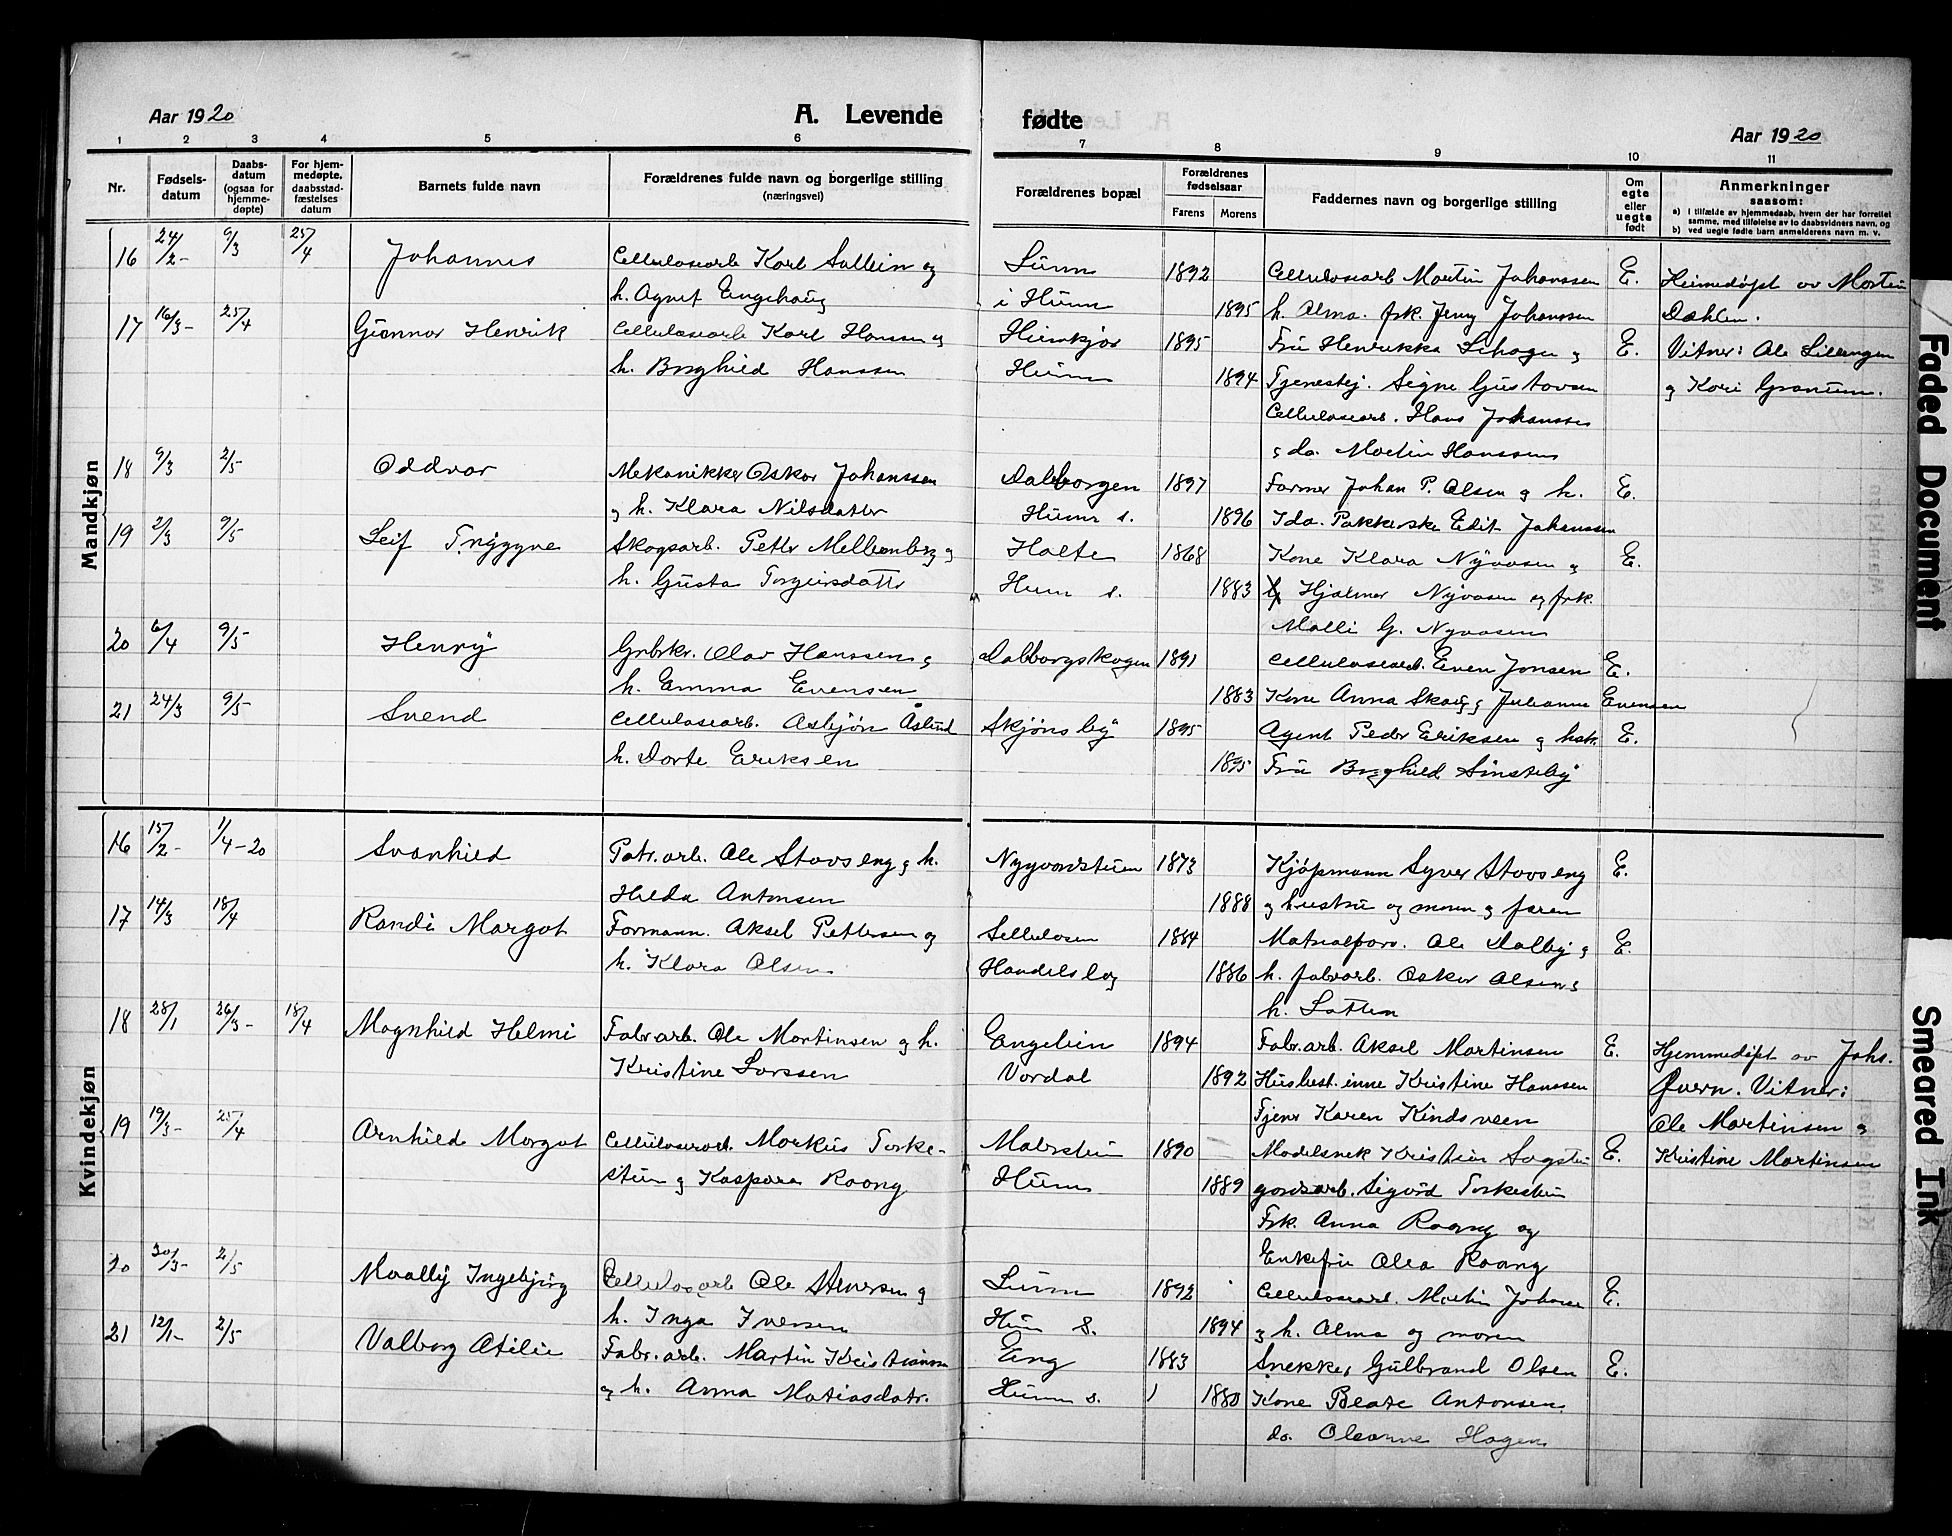 Aar 1920
A. Levende
fødte
Aar 1920
1 2 3 4 5 6 7 8 9 10 11
Nr.
Fødsels-
datum
Daabs-
datum
(ogsaa for
hjemme-
døpte)
For hjem-
medøpte,
daabsstad-
fæstelses
datum
Barnets fulde navn
Forældrenes fulde navn og borgerlige stilling
(næringsvei)
Forældrenes bopæl
Forældrenes
fødselsaar
Farens Morens
Faddernes navn og borgerlige stilling
Om
egte
eller
uegte
født
Anmerkninger
saasom:
a) i tilfælde av hjemmedaab, hvem der har forrettet
samme, med tilføielse av to daabsvidners navn, og
b) ved uegte fødte barn anmelderens navn m. v.
Mandkjøn
16 24/2- 9/3 25/4 Johannes Cellulosearb Karl og 1892 Cellulosearb Martin Johanssen E. Heimedøpt av Martin
h. Agnet Engehaug i Hunn 1895 h. Alma. frk. Jenny Johanssen Dahlen.
17 16/3- 25/4 Gunnar Henrik Cellulosearb Karl Hanssen og 1895 Fru Henrikka og E. Vitner: Ole
h. Borghild Hanssen Hunn 1894 Tjenestpj. Signe Gustavsen og Kari Granum.
Cellulosearb. Hans Johanssen
og do. Martin Hanssen
18 9/3 2/5 Oddvar Mekanikker Oskar Johanssen Dalborgen 1897 Farmer Johan P. Olsen og h. E.
og h. Klara Nilsdatter Hunn s. 1896 Ida. Pakkerske Edit Johanssen
19 2/3 9/5 Leif Tryggve Skogsarb. Petter og Holte 1868 Kone Klara Nyvosen og E.
h. Gusta Torgeirsdatter Hunn s. 1883 Hjalmar Nyvosen og frk.
Malli G. Nyvosen
20 6/4 9/5 Henry Grbkr. Olav Hanssen og Dalborgskogen 1891 Cellulosearb. Even Jonsen E.
h. Emma Evensen 1883 Kone Anna Skaug og Julianne Evensen
21 24/3 9/5 Svend Cellulosearb. Asbjørn Åslund Skjønsby 1895 Agent Peder Eriksen og hstr. E.
h. Dorte Eriksen 1895 Fru Borghild Sønsteby
Kvindekjøn
16 15/2- 1/4-20 Svanhild Ole Stovseng og h. 1873 Kjøpmann Syver Stovseng E.
Hilda Antonsen 1888 og hustru og moren og faren
17 14/3 18/4 Randi Margot Formann. Aksel Pettersen og Sellulosen 1884 Ole Dalby og E.
h. Klara Olsen Handelslag 1886 h. fabrarb. Oskar Olsen og
h.
18 28/1 26/3- 18/4 Magnhild Helmi Fabr.arb. Ole Martinsen og h. Engelien 1894 Fabr.arb. Aksel Martinsen E. Hjemmedøpt av Johs.
Kristine Larssen Vardal 1892 Husbest.inne Kristine Hanssen Qvern. Vitner:
Tjener Karen Kindsveen Ole Martinsen og
19 19/3- 25/4 Arnhild Margot Cellulosearb. Markus Torke- 1890 Modelsnek Kristian E. Kristine Martinsen
stuen og Kaspara Raang Hunn 1889 gardsarb. Sigurd Torkestuen
Frk. Anna Raang og
Enkefru Olea Raang
20 30/3- 2/5 Maally Ingebjørg Cellulosearb Ole og 1892 Cellulosearb. Martin Johanse E.
h. Inga Iversen Hun s. 1894 og h. Alma og moren
21 12/1- 2/5 Valborg Otilie Fabr.arb. Martin Kristiansen Eng 1883 Snekker Gulbrand Olsen E.
og h. Anna Matiasdatr. Hunn s. 1 1880 Kone Beate Antonsen.
do. Oleanne Hagen
Faded Document
Smeared Ink